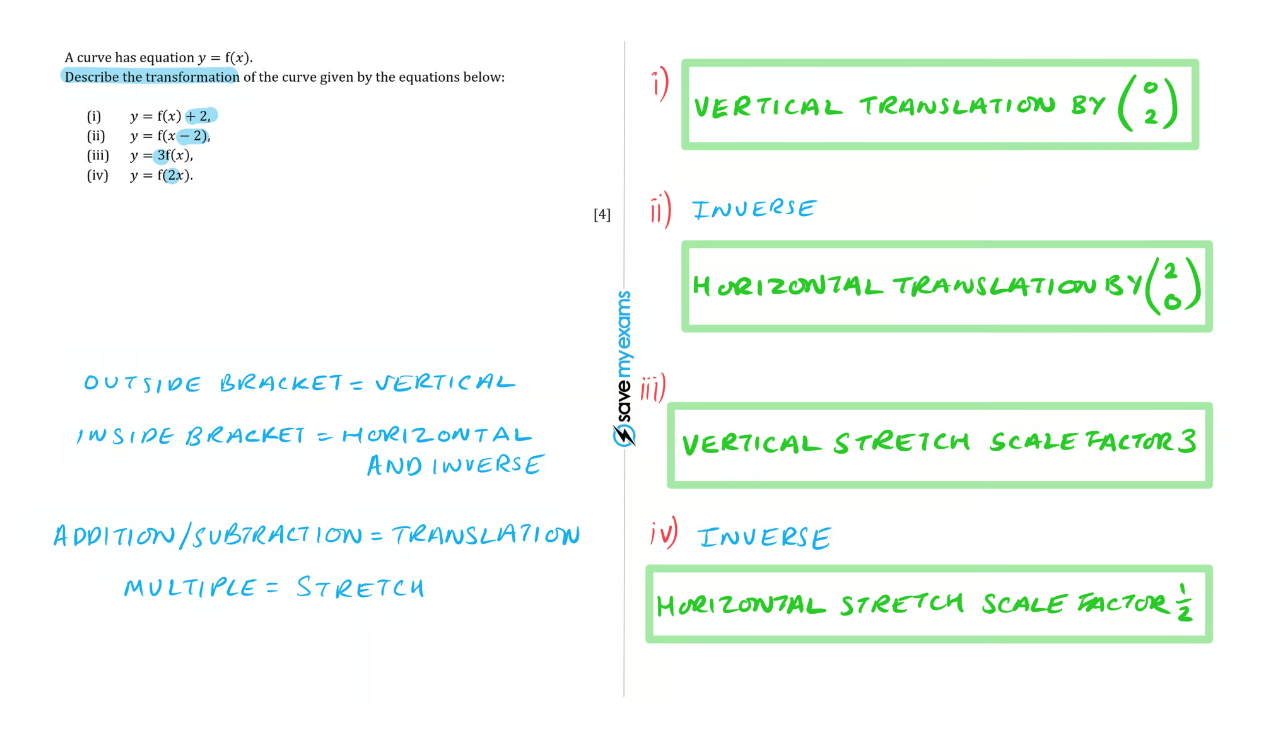 A curve has equation y = f(x).
Describe the transformation of the curve given by the equations below:
(i) y = f(x) + 2,
(ii) y = f(x − 2),
(iii) y = 3f(x),
(iv) y = f(2x).
[4]
OUTSIDE BRACKET = VERTICAL
INSIDE BRACKET = HORIZONTAL
AND INVERSE
ADDITION/SUBTRACTION = TRANSLATION
MULTIPLE = STRETCH
savemyexams
i)
VERTICAL TRANSLATION BY (0 2)
ii) INVERSE
HORIZONTAL TRANSLATION BY (2 0)
iii)
VERTICAL STRETCH SCALE FACTOR 3
iv) INVERSE
HORIZONTAL STRETCH SCALE FACTOR 1/2